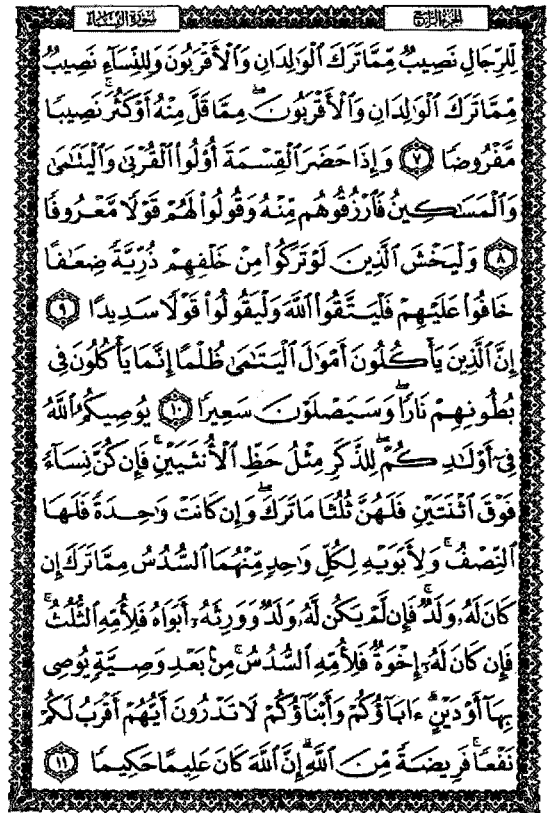 سورة النساء
الجزء الرابع
لِّلرِّجَالِ نَصِيبٌ مِّمَّا تَرَكَ ٱلْوَٰلِدَانِ وَٱلْأَقْرَبُونَ وَلِلنِّسَآءِ نَصِيبٌ
مِّمَّا تَرَكَ ٱلْوَٰلِدَانِ وَٱلْأَقْرَبُونَ مِمَّا قَلَّ مِنْهُ أَوْ كَثُرَ ۚ نَصِيبًا
مَّفْرُوضًا ٧ وَإِذَا حَضَرَ ٱلْقِسْمَةَ أُو۟لُوا۟ ٱلْقُرْبَىٰ وَٱلْيَتَٰمَىٰ
وَٱلْمَسَٰكِينُ فَٱرْزُقُوهُم مِّنْهُ وَقُولُوا۟ لَهُمْ قَوْلًا مَّعْرُوفًا
٨ وَلْيَخْشَ ٱلَّذِينَ لَوْ تَرَكُوا۟ مِنْ خَلْفِهِمْ ذُرِّيَّةً ضِعَٰفًا
خَافُوا۟ عَلَيْهِمْ فَلْيَتَّقُوا۟ ٱللَّهَ وَلْيَقُولُوا۟ قَوْلًا سَدِيدًا ٩
إِنَّ ٱلَّذِينَ يَأْكُلُونَ أَمْوَٰلَ ٱلْيَتَٰمَىٰ ظُلْمًا إِنَّمَا يَأْكُلُونَ فِى
بُطُونِهِمْ نَارًا ۖ وَسَيَصْلَوْنَ سَعِيرًا ١٠ يُوصِيكُمُ ٱللَّهُ
فِىٓ أَوْلَٰدِكُمْ ۖ لِلذَّكَرِ مِثْلُ حَظِّ ٱلْأُنثَيَيْنِ ۚ فَإِن كُنَّ نِسَآءً
فَوْقَ ٱثْنَتَيْنِ فَلَهُنَّ ثُلُثَا مَا تَرَكَ ۖ وَإِن كَانَتْ وَٰحِدَةً فَلَهَا
ٱلنِّصْفُ ۚ وَلِأَبَوَيْهِ لِكُلِّ وَٰحِدٍ مِّنْهُمَا ٱلسُّدُسُ مِمَّا تَرَكَ إِن
كَانَ لَهُۥ وَلَدٌ ۚ فَإِن لَّمْ يَكُن لَّهُۥ وَلَدٌ وَوَرِثَهُۥٓ أَبَوَاهُ فَلِأُمِّهِ ٱلثُّلُثُ ۚ
فَإِن كَانَ لَهُۥٓ إِخْوَةٌ فَلِأُمِّهِ ٱلسُّدُسُ ۚ مِنۢ بَعْدِ وَصِيَّةٍ يُوصِى
بِهَآ أَوْ دَيْنٍ ۗ ءَابَآؤُكُمْ وَأَبْنَآؤُكُمْ لَا تَدْرُونَ أَيُّهُمْ أَقْرَبُ لَكُمْ
نَفْعًا ۚ فَرِيضَةً مِّنَ ٱللَّهِ ۗ إِنَّ ٱللَّهَ كَانَ عَلِيمًا حَكِيمًا ١١